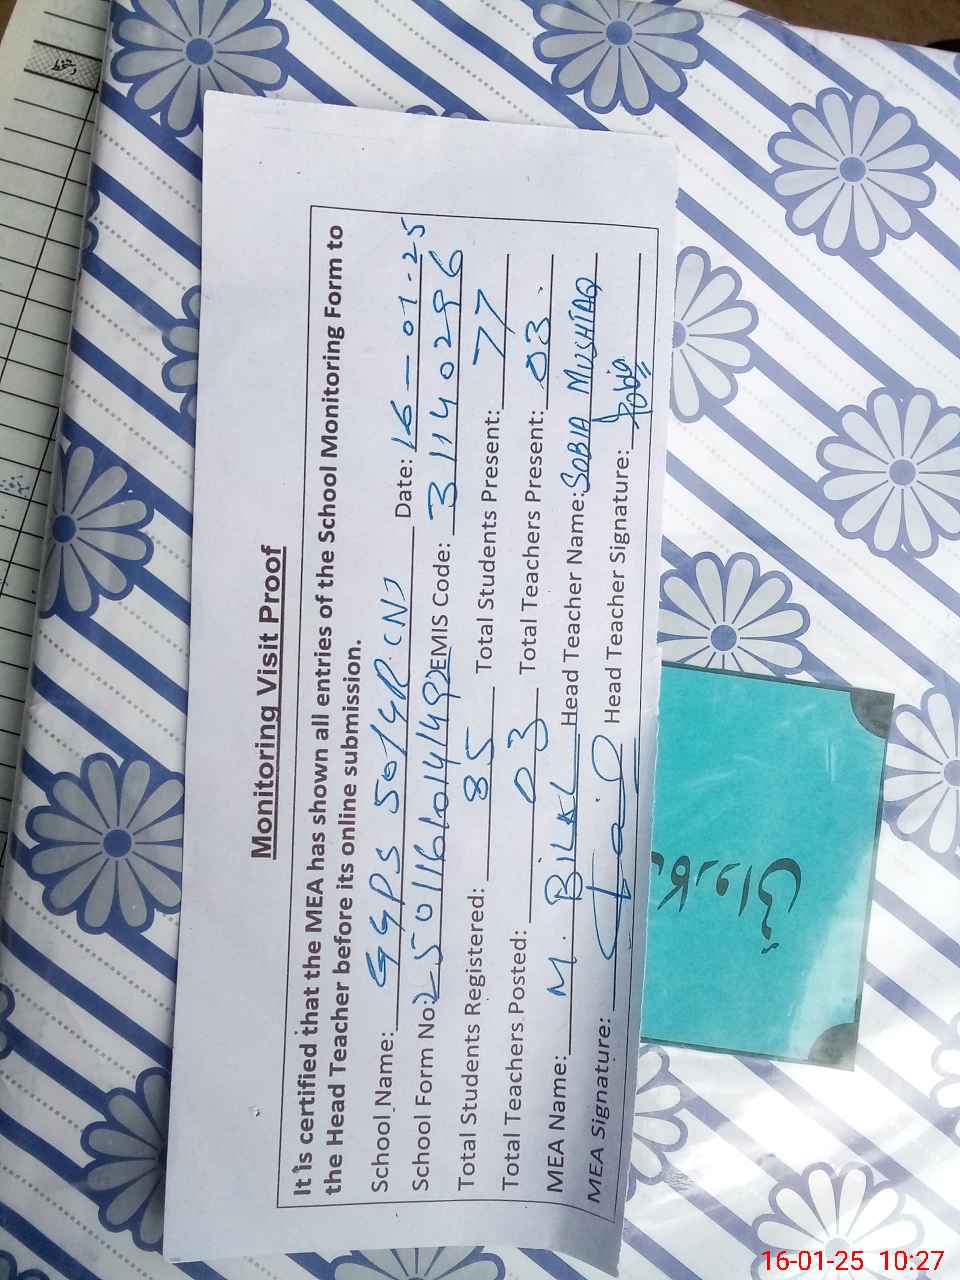 Monitoring Visit Proof
It is certified that the MEA has shown all entries of the School Monitoring Form to
the Head Teacher before its online submission.
School Name: GGPS 50/4R (N) Date: 16-01-25
School Form No: EMIS Code: 31140296
Total Students Registered: 85 Total Students Present: 77
Total Teachers Posted: 03 Total Teachers Present: 03.
MEA Name: M. BILAL Head Teacher Name: SOBIA MUSHTAQ
MEA Signature: Head Teacher Signature: Sobia
16-01-25 10:27